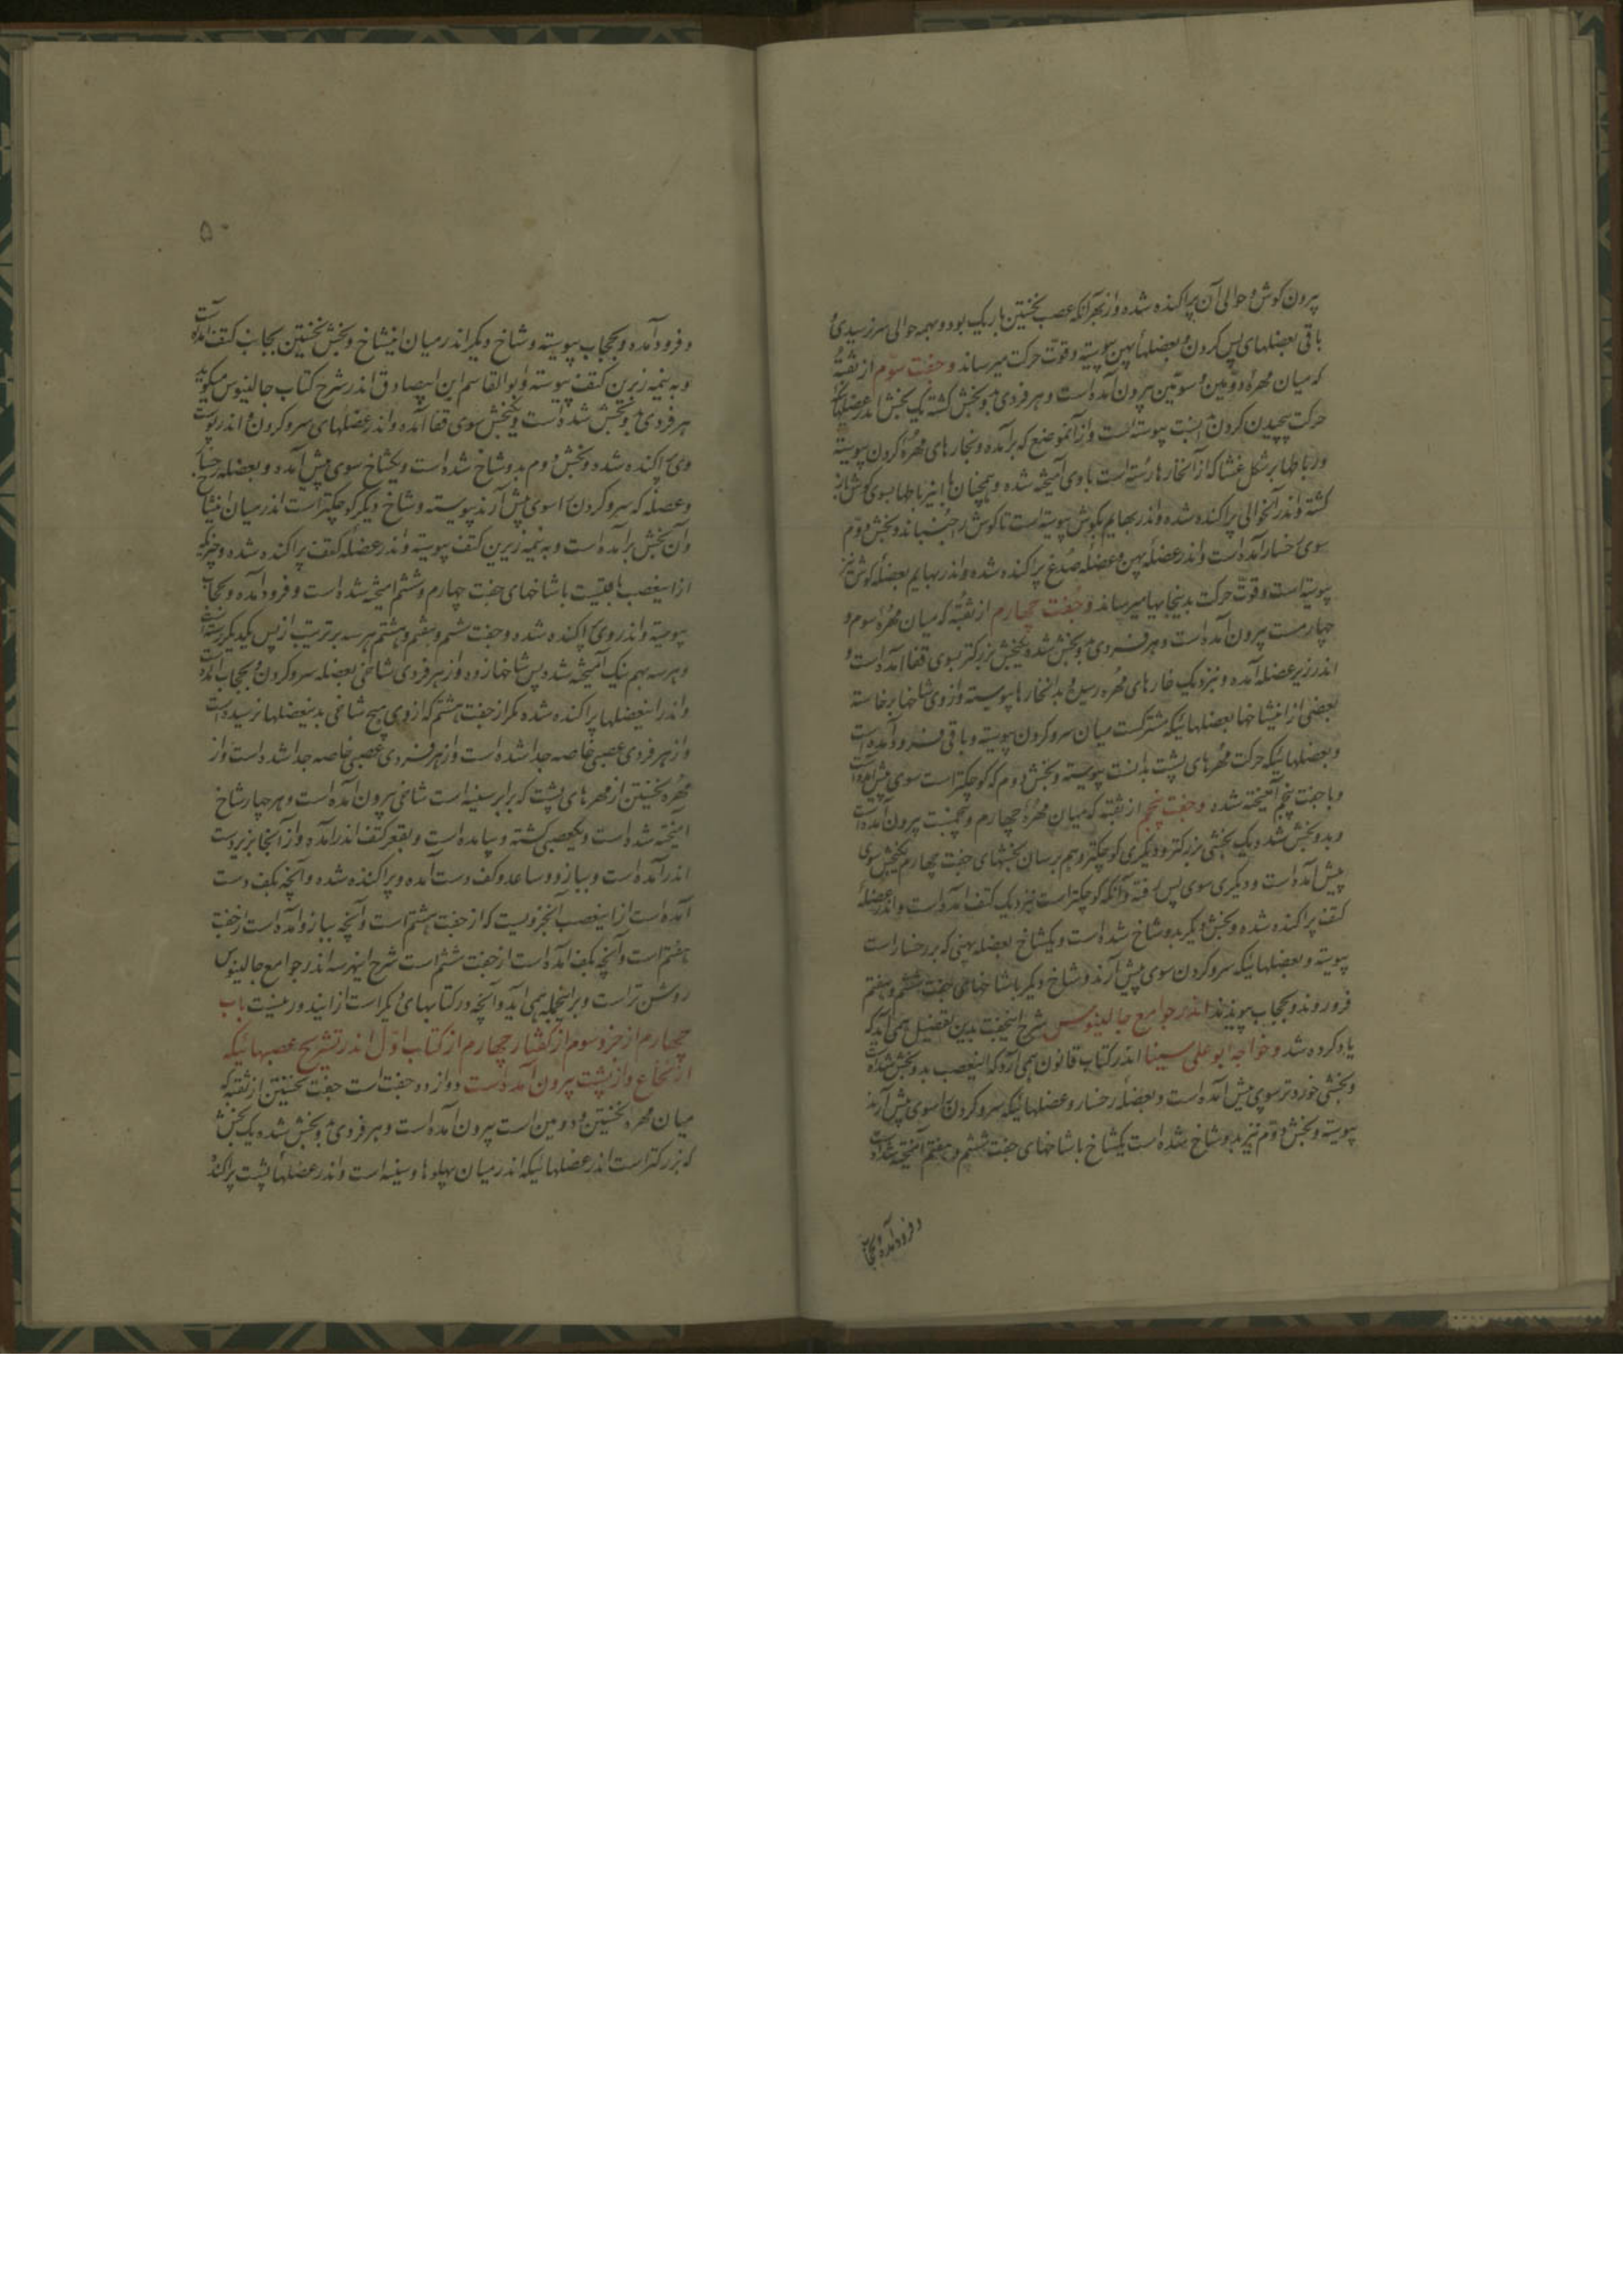 بیرون گوش و حوالی آن پراکنده شده و از بهر آنکه عصب نخستین باریک بود و بهمه حوالی سر نرسیدی
باقی بعضلهای پس گردن و بعضلهٔ پهن پیوسته و قوّت حرکت میرساند و جفت سوّم از ثقبهٔ
که میان مهرهٔ دوّمین و سوّمین بیرون آمده است و هر فردی بدو بخش گشته یک بخش اندر عضلهای
حرکت پیچیدن گردن پیوسته است و از آنموضع که برآمده و بخارهای مهرهٔ گردن پیوسته
و رباطها بر شکل غشا که از آنخارها رسته است با وی آمیخته شده و همچنان با این رباطها بسوی گوش باز
گشته و اندر آنحوالی پراکنده شده و اندر بهایم بگوش پیوسته است تا گوش را جنباند و بخش دوّم
سوی رخسار آمده است و اندر عضلهٔ پهن و عضلهٔ صدغ پراکنده شده و اندر بهایم بعضلهٔ گوش نیز
پیوسته است و قوّت حرکت بدینجایها میرساند و جفت چهارم از ثقبه که میان مهرهٔ سوم و
چهارمست بیرون آمده است و هر فردی بدو بخش شده یک بخش بزرگتر بسوی قفا آمده است و
اندر زیر عضله آمده و بنزدیک خارهای مهره رسیده و بدانخارها پیوسته و از وی شاخها برخاسته
بعضی از اینشاخها بعضلهائیکه مشترکست میان سر و گردن پیوسته و باقی فرود آمده است
و بعضلهائیکه حرکت مهرهای پشت بدانست پیوسته و بخش دوم که کوچکتر است سوی پیش آمده است
و با جفت پنجم آمیخته شده و جفت پنجم از ثقبه که میان مهرهٔ چهارم و پنجمست بیرون آمده است
و بدو بخش شده یک بخشی بزرگتر و دیگری کوچکتر و هم برسان بخشهای جفت چهارم یکبخش سوی
پیش آمده است و دیگری سوی پس رفته و آنکه کوچکتر است بنزدیک کتف آمده است و اندر عضلهٔ
کتف پراکنده شده و بخش دیگر بدو شاخ شده است و یکشاخ بعضله پهنی که بر رخسار است
پیوسته و بعضلهائیکه سر و گردن سوی پیش آرند و شاخ دیگر با شاخهای جفت ششم و هفتم
فرو روند و بحجاب پیوندند اندر جوامع جالینوس شرح اینجفت بدین تفصیل همی آید که
یاد کرده شد و خواجه ابو علی سینا اندر کتاب قانون همی آرد که اینعصب بدو بخش شده است
و بخشی خردتر سوی پیش آمده است و بعضلهٔ رخسار و عضلهائیکه سر و گردن را سوی پیش آرند
پیوسته و بخش دوّم نیز بدو شاخ شده است یکشاخ با شاخهای جفت ششم و هفتم آمیخته شده است
و فرود آمده و بحجاب
۵۰
و فرود آمده و بحجاب پیوسته و شاخ دیگر اندر میان اینشاخ و بخش نخستین بجانب کتف آمده است
و به نیمه زیرین کتف پیوسته و ابو القاسم ابن ابیصادق اندر شرح کتاب جالینوس میگوید
هر فردی بدو بخش شده است و یکبخش سوی قفا آمده و اندر عضلهای سر و گردن و اندر پوست
وی پراکنده شده و بخش دوم بدو شاخ شده است و یکشاخ سوی پیش آمده و بعضله رخسار
و عضله که سر و گردن را سوی پیش آرند پیوسته و شاخ دیگر کوچکتر است اندر میان اینشاخ
و آن بخش برآمده است و به نیمه زیرین کتف پیوسته و اندر عضلهٔ کتف پراکنده شده و چیزیکه
از اینعصب باقیست با شاخهای جفت چهارم و ششم آمیخته شده است و فرود آمده و بحجاب
پیوسته و اندر وی پراکنده شده و جفت ششم و هفتم و هشتم هر سه بر ترتیب از پس یکدیگر رسته است
و هر سه بهم نیک آمیخته شده پس شاخها زده و از هر فردی شاخی بعضله سر و گردن و بحجاب آمده است
و اندر اینعضلها پراکنده شده مگر از جفت هشتم که از وی هیچ شاخی بدینعضلها نرسیده است
و از هر فردی عصبی خاصه جدا شده است و از هر فردی عصبی خاصه جدا شده است و از
مهره نخستین از مهرهای پشت که برابر سینه است شاخی بیرون آمده است و هر چهار شاخ
آمیخته شده است و یکعصبی گشته و بیامده است و بقعر کتف اندر آمده و از آنجا بزیر دست
اندر آمده است و ببازو و ساعد و کف دست آمده و پراکنده شده و آنچه بکف دست
آمده است از اینعصب آنجزویست که از جفت هشتم است و آنچه ببازو آمده است از جفت
هفتم است و آنچه بکف آمده است از جفت ششم است شرح اینهر سه اندر جوامع جالینوس
روشن تر است و بر اینجمله همی آید و آنچه در کتابهای دیگر است از ایندور نیست باب
چهارم از جزو سوم از گفتار چهارم از کتاب اوّل اندر تشریح عصبهائیکه
از نخاع و از پشت بیرون آمده است دوازده جفت است جفت نخستین از ثقبه که
میان مهره نخستین و دومین است بیرون آمده است و هر فردی بدو بخش شده یک بخش
که بزرگتر است اندر عضلهائیکه اندر میان پهلوها و سینه است و اندر عضلهٔ پشت پراکنده